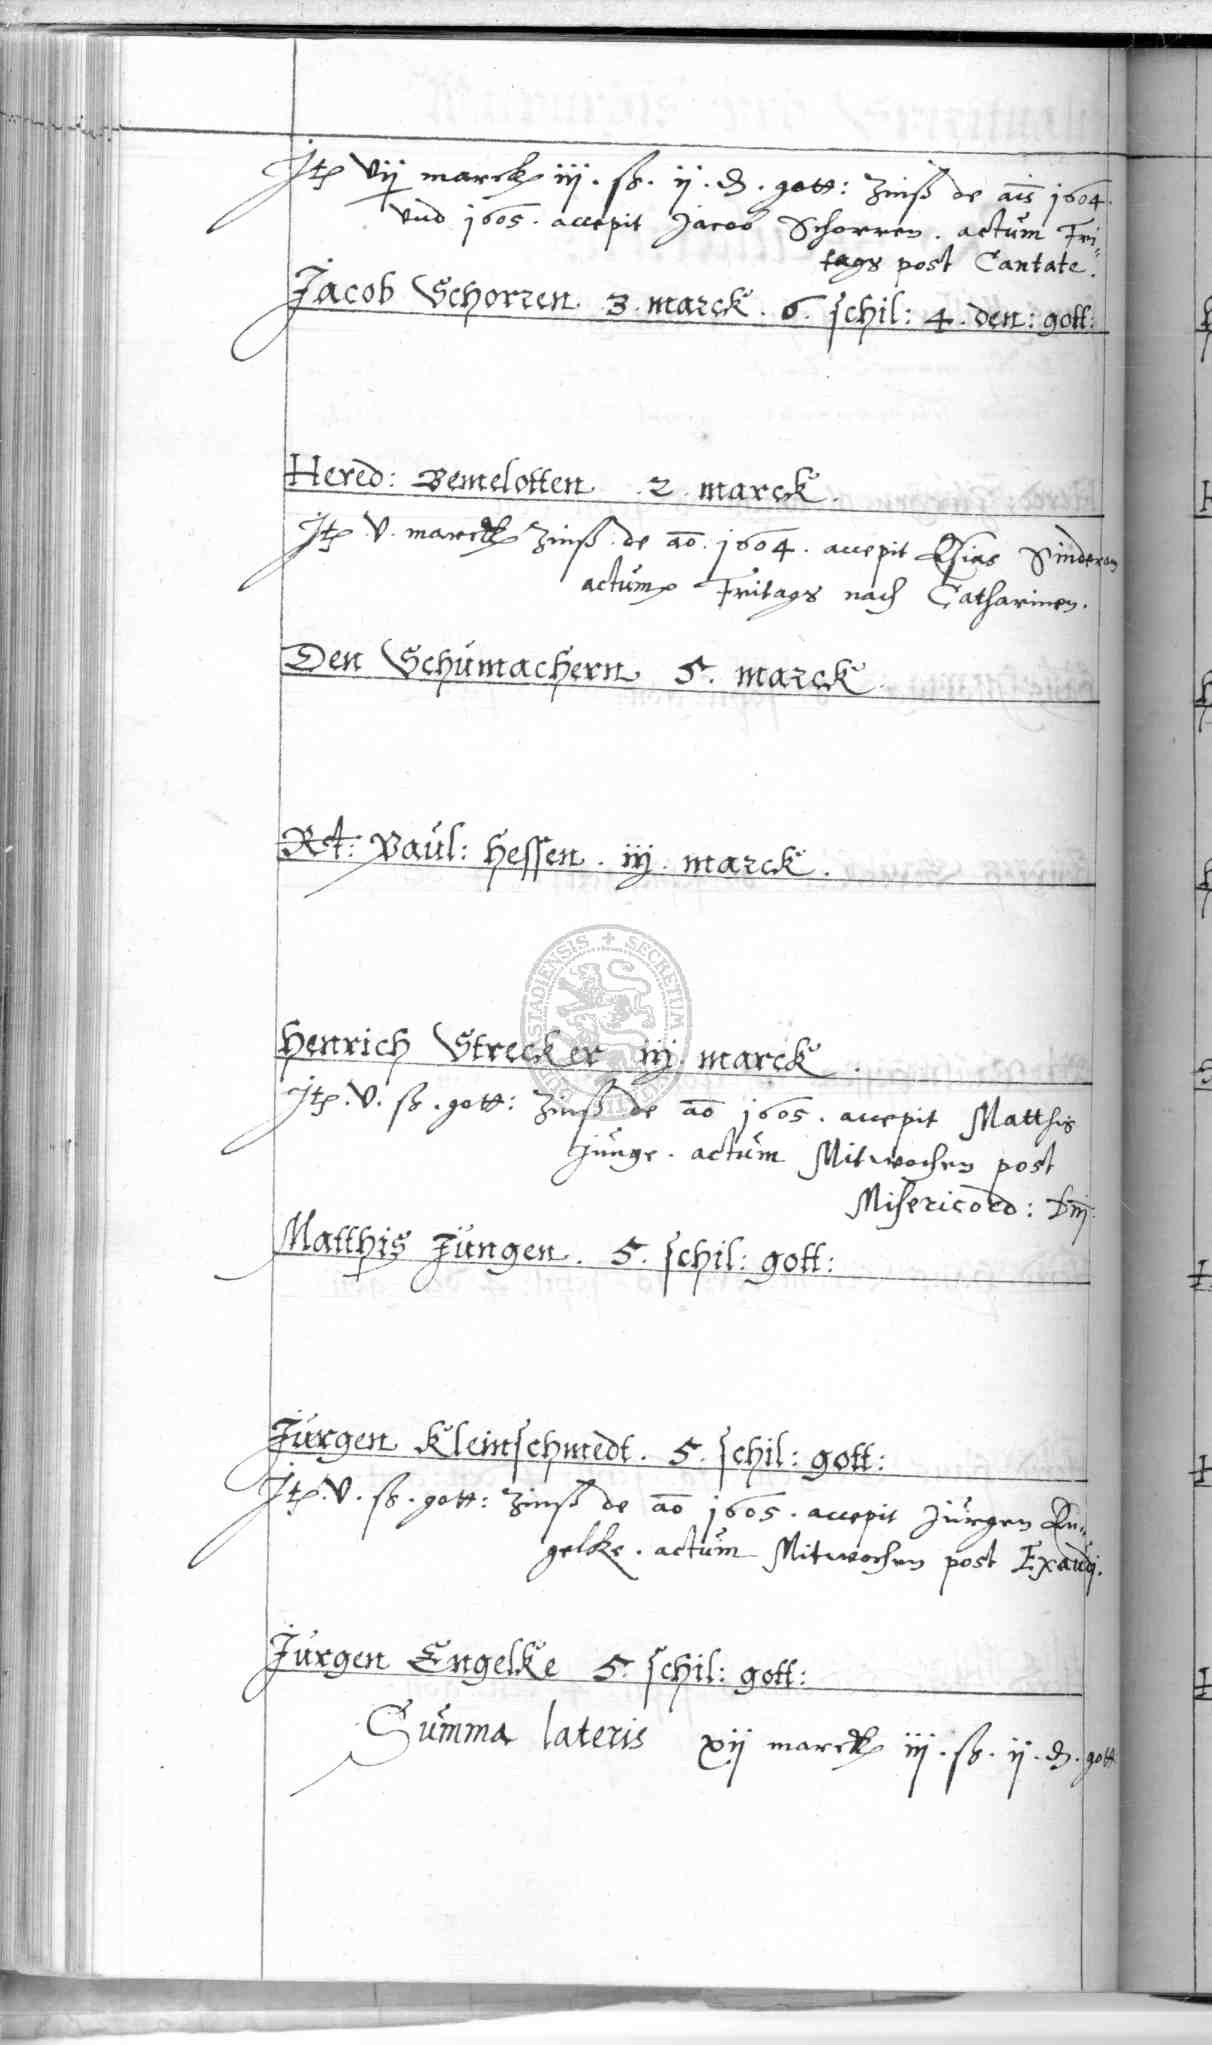 Itp vij marck iij . ß . ij . d . gott: Zinß de ais 1604.
vnd 1605. accepit Jacob Schorren . actum Fri-
tags post Cantate.
Jacob Schorren . 3 . marck . 6 . schil: 4 . den: gott:
Hered: Bemelotten . 2 . marck .
Itp . V . marck Zinß . de ao . 1604 . accepit Esias Sinderam
actum Fritags nach Catharinen.
Den Schumachern 5 . marck .
Rt: Paul: Hessen . iij . marck .
Henrich Strecker iij . marck .
Itp . V . ß . gott: Zinß de ao 1605 . accepit Matthis
Junge . actum Mitwochen post
Misericord: Dni:
Matthis Jungen . 5 . schil: gott:
Jurgen Kleinschmedt . 5 . schil: gott:
Itp . V . ß . gott: Zinß de ao 1605 . accepit Jürgen En-
gelke . actum Mitwochen post Exaudi.
Jurgen Engelke 5 . schil: gott:
Summa lateris xij marck iij . ß . ij . d . gott
SECRETUM
STADIENSIS